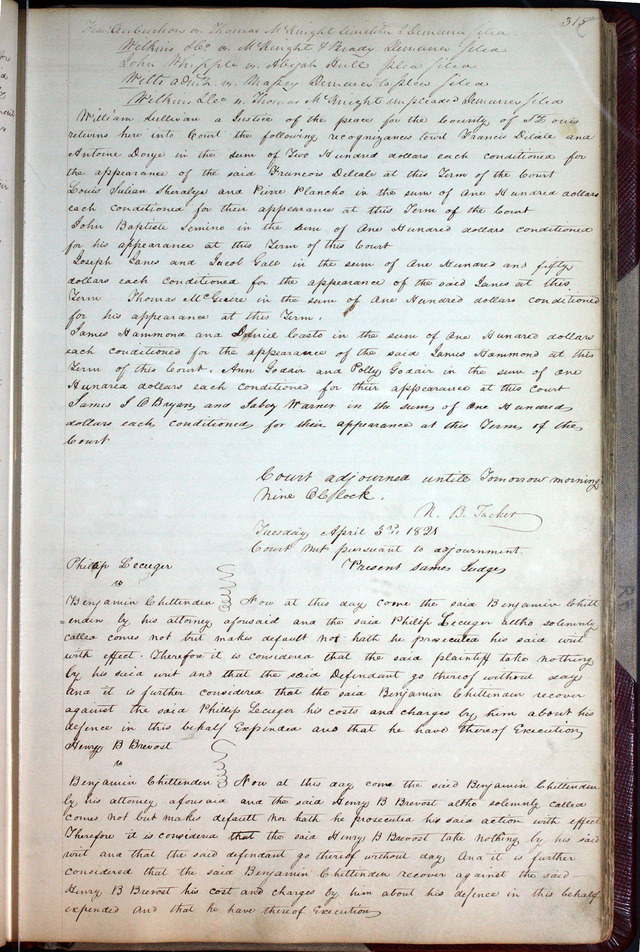 317
Wilkins &Co vs McKnight & Brady Demurrer filed
John Whipple vs Abijah Hull plea filed
Wilkins &Co vs Thomas McKnight impleaded Demurrer filed
William Sullivan a Justice of the peace for the County of St Louis
returns here into Court the following recognizances towit Francis Delale and
Antoine Doye in the sum of Two Hundred dollars each conditioned for
the appearance of the said Francois Delale at this Term of the Court
Louis Julian and Pierre Plancho in the sum of One Hundred dollars
each conditioned for their appearance at this Term of the Court
John Baptiste in the sum of One Hundred dollars conditioned
for his appearance at this Term of this Court
Joseph Janes and Jacob Gale in the sum of One Hundred and fifty
dollars each conditioned for the appearance of the said Janes at this
Term Thomas McGuire in the sum of One Hundred dollars conditioned
for his appearance at this Term.
James Hammond and Daniel Casto in the sum of One Hundred dollars
each conditioned for the appearance of the said James Hammond at this
Term of this Court. Ann Godair and Polly Godair in the sum of One
Hundred dollars each conditioned for their appearance at this Court
James J OBryan and Jabez Warner in the sum of One Hundred
dollars each conditioned for their appearance at this Term of the
Court
Court adjourned untill Tomorrow morning
Nine OClock.
N. B. Tucker
Tuesday April 3rd, 1821
Court met pursuant to adjournment.
Present same Judge
Philip Lecuger
vs
Benjamin Chittenden Now at this day come the said Benjamin Chitt
enden by his attorney aforesaid and the said Philip Lecuger altho solemnly
called comes not but makes default nor hath he prosecuted his said writ
with effect. Therefore it is considered that the said plaintiff take nothing
by his said writ and that the said Defendant go thereof without day
And it is further considered that the said Benjamin Chittenden recover
against the said Phillip Lecuger his costs and charges by him about his
defence in this behalf Expended and that he have thereof Execution
Henry B Brevost
vs
Benjamin Chittenden Now at this day come the said Benjamin Chittenden
by his attorney aforesaid and the said Henry B Brevost altho solemnly called
comes not but makes default nor hath he prosecuted his said action with effect
Therefore it is considered that the said Henry B Brevost take nothing by his said
writ and that the said defendant go thereof without day And it is further
considered that the said Benjamin Chittenden recover against the said
Henry B Brevost his cost and charges by him about his defence in this behalf
expended and that he have thereof Execution